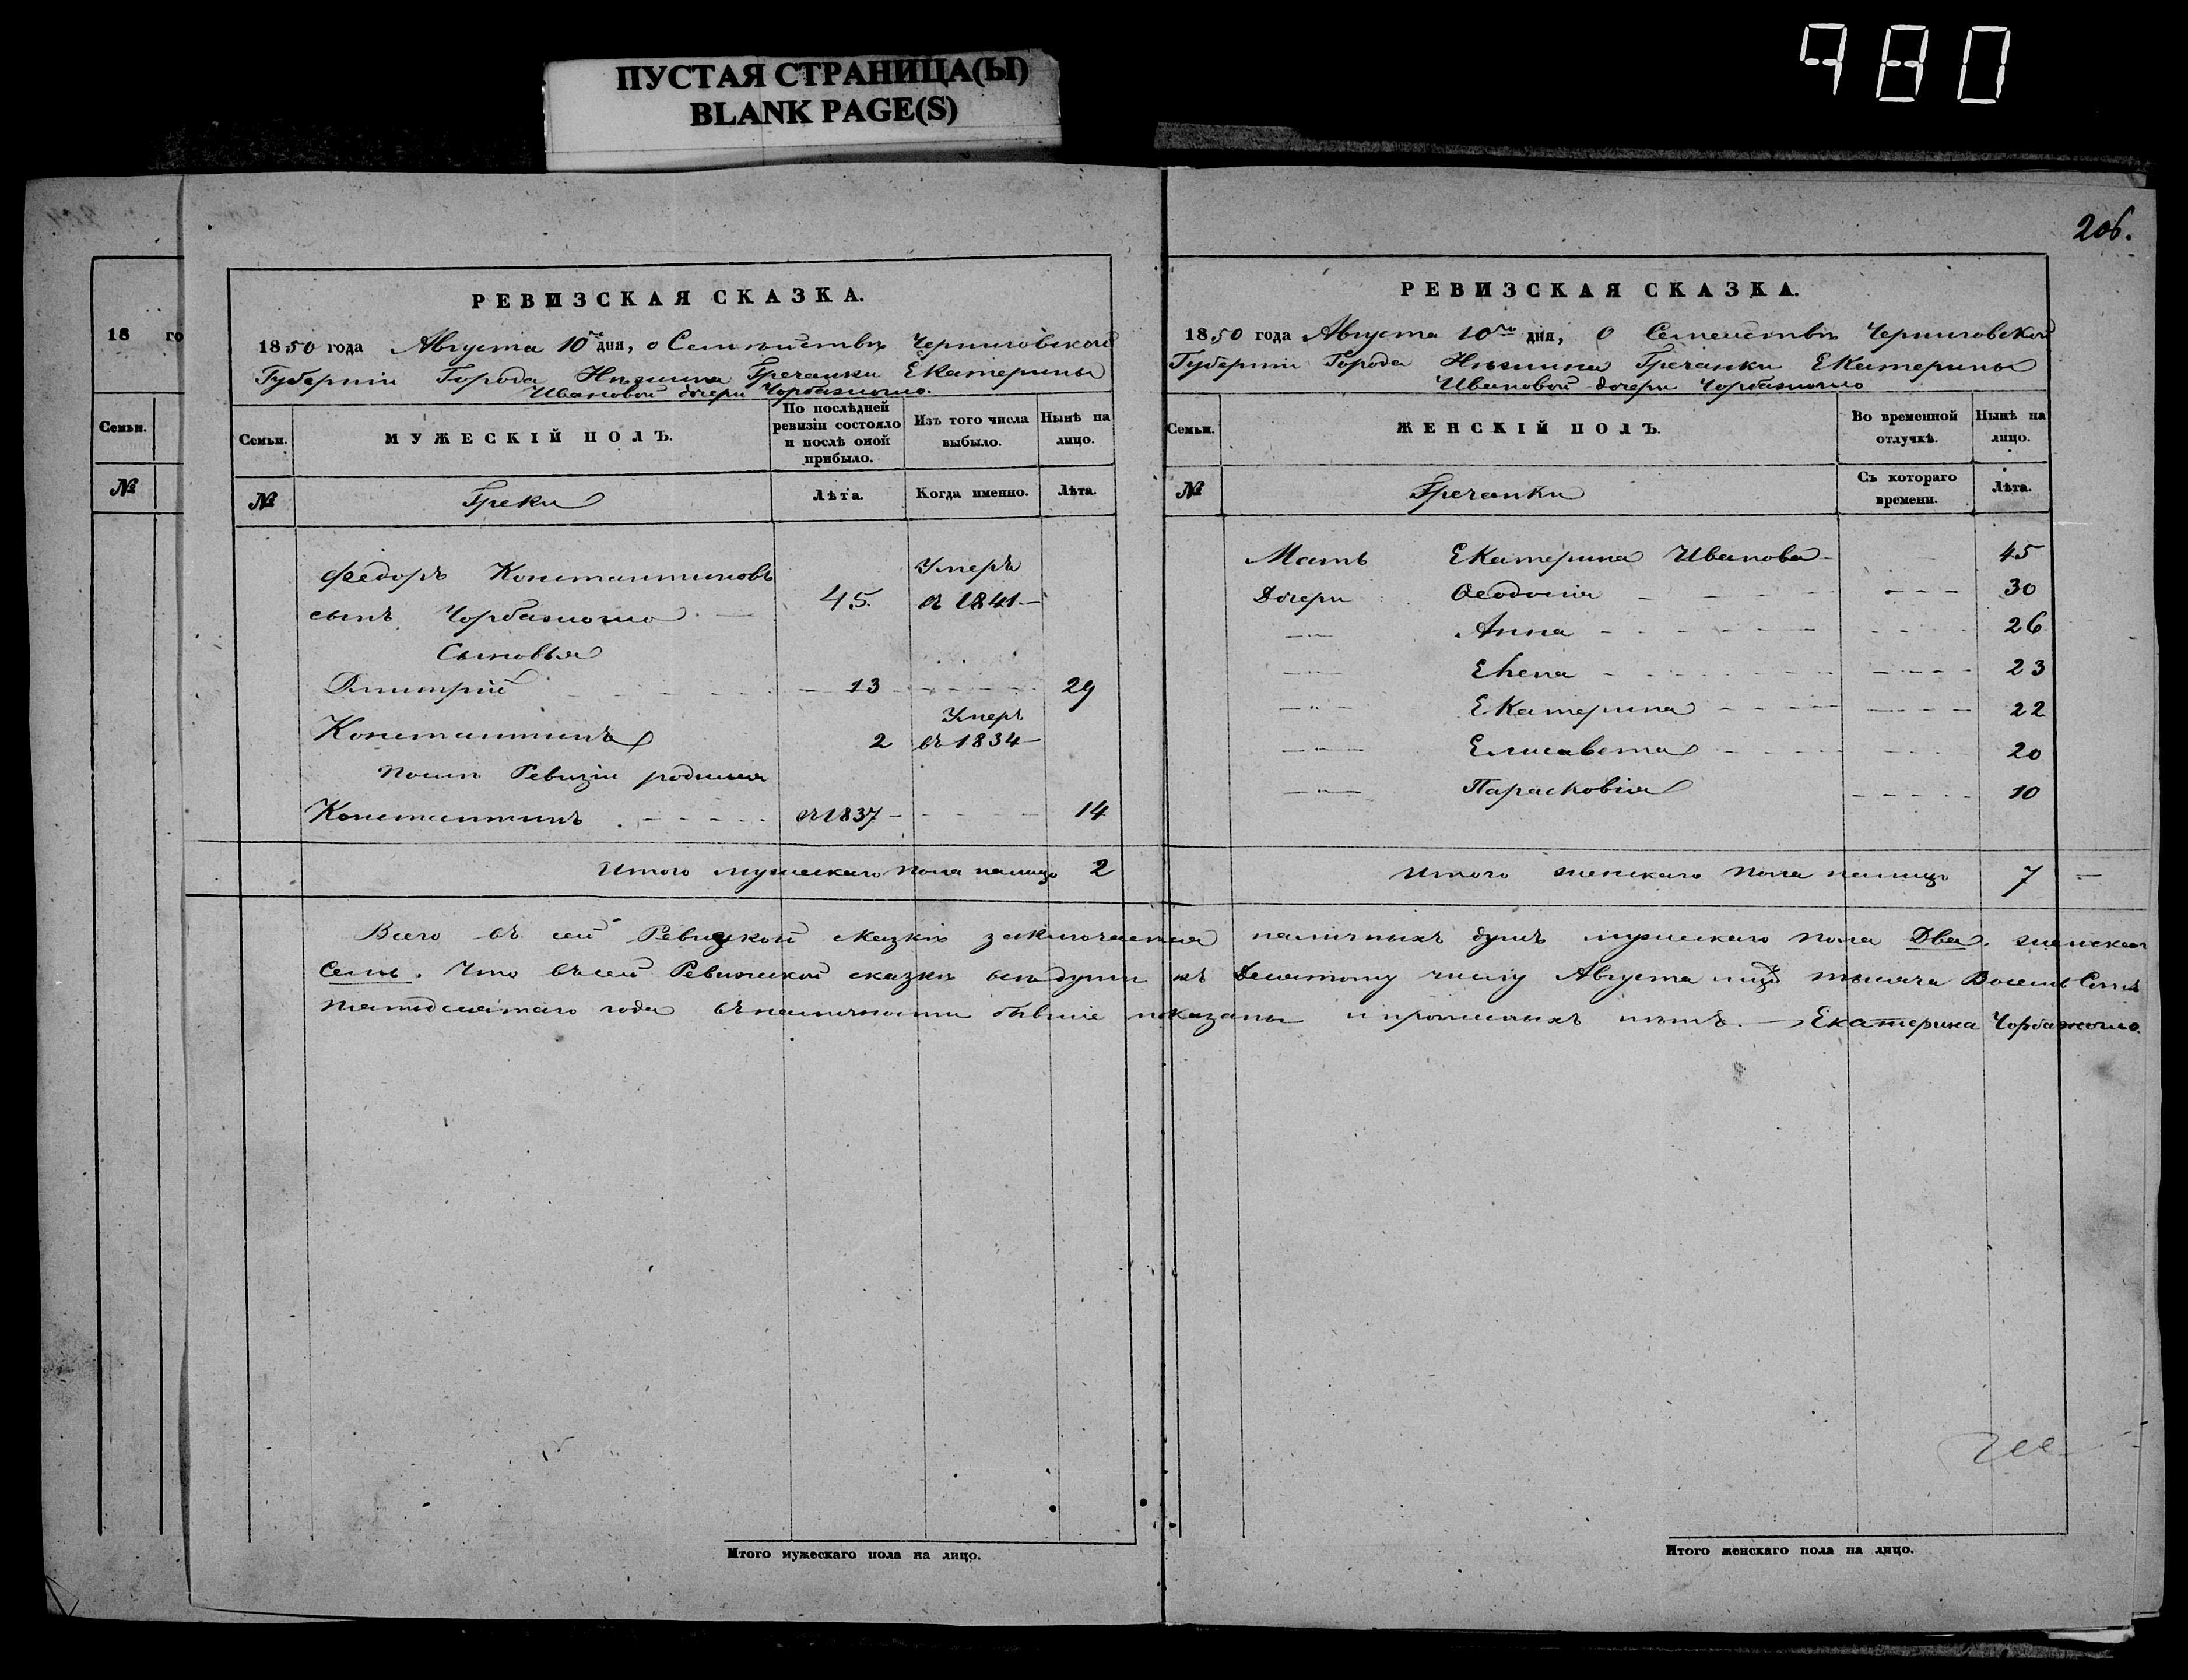 980
ПУСТАЯ СТРАНИЦА(Ы)
BLANK PAGE(S)
206.
18 го
Семьи.
№
РЕВИЗСКАЯ СКАЗКА.
1850 года Августа 10го дня, о Семействѣ Черниговской
Губерніи Города Нѣжина Гречанки Екатерины
Ивановой дочери Чорбажогло.
Семьи.
МУЖЕСКІЙ ПОЛЪ.
По послѣдней ревизіи состояло и послѣ оной прибыло.
Изъ того числа выбыло.
Нынѣ на лицо.
№ Греки Лѣта. Когда именно. Лѣта.
Федоръ Константиновъ Умеръ
сынъ Чорбажогло 45. въ 1841
Сыновья
Дмитрій 13 29
Умеръ
Константинъ 2 въ 1834
Послѣ Ревизіи родился
Константинъ въ 1837 14
Итого мужескаго пола налицо 2
РЕВИЗСКАЯ СКАЗКА.
1850 года Августа 10го дня, О Семействѣ Черниговской
Губерніи Города Нѣжина Гречанки Екатерины
Ивановой дочери Чорбажогло
Семьи.
ЖЕНСКІЙ ПОЛЪ.
Во временной отлучкѣ.
Нынѣ на лицо.
№ Гречанки Съ котораго времени. Лѣта.
Мать Екатерина Иванова 45
Дочери Ѳеодосія 30
Анна 26
Елена 23
Екатерина 22
Елисавета 20
Парасковія 10
Итого женскаго пола налицо 7
Всего въ сей Ревизской сказкѣ заключается наличныхъ душъ мужескаго пола Два. женскаго
Семь. Что въ сей Ревизской сказкѣ всѣ души къ Десятому числу Августа тысяча Восемь Сотъ
пятьдесятаго года въ наличности бывшіе показаны и прописныхъ нѣтъ. Екатерина Чорбажогло.
Итого мужескаго пола на лицо.
Итого женскаго пола на лицо.